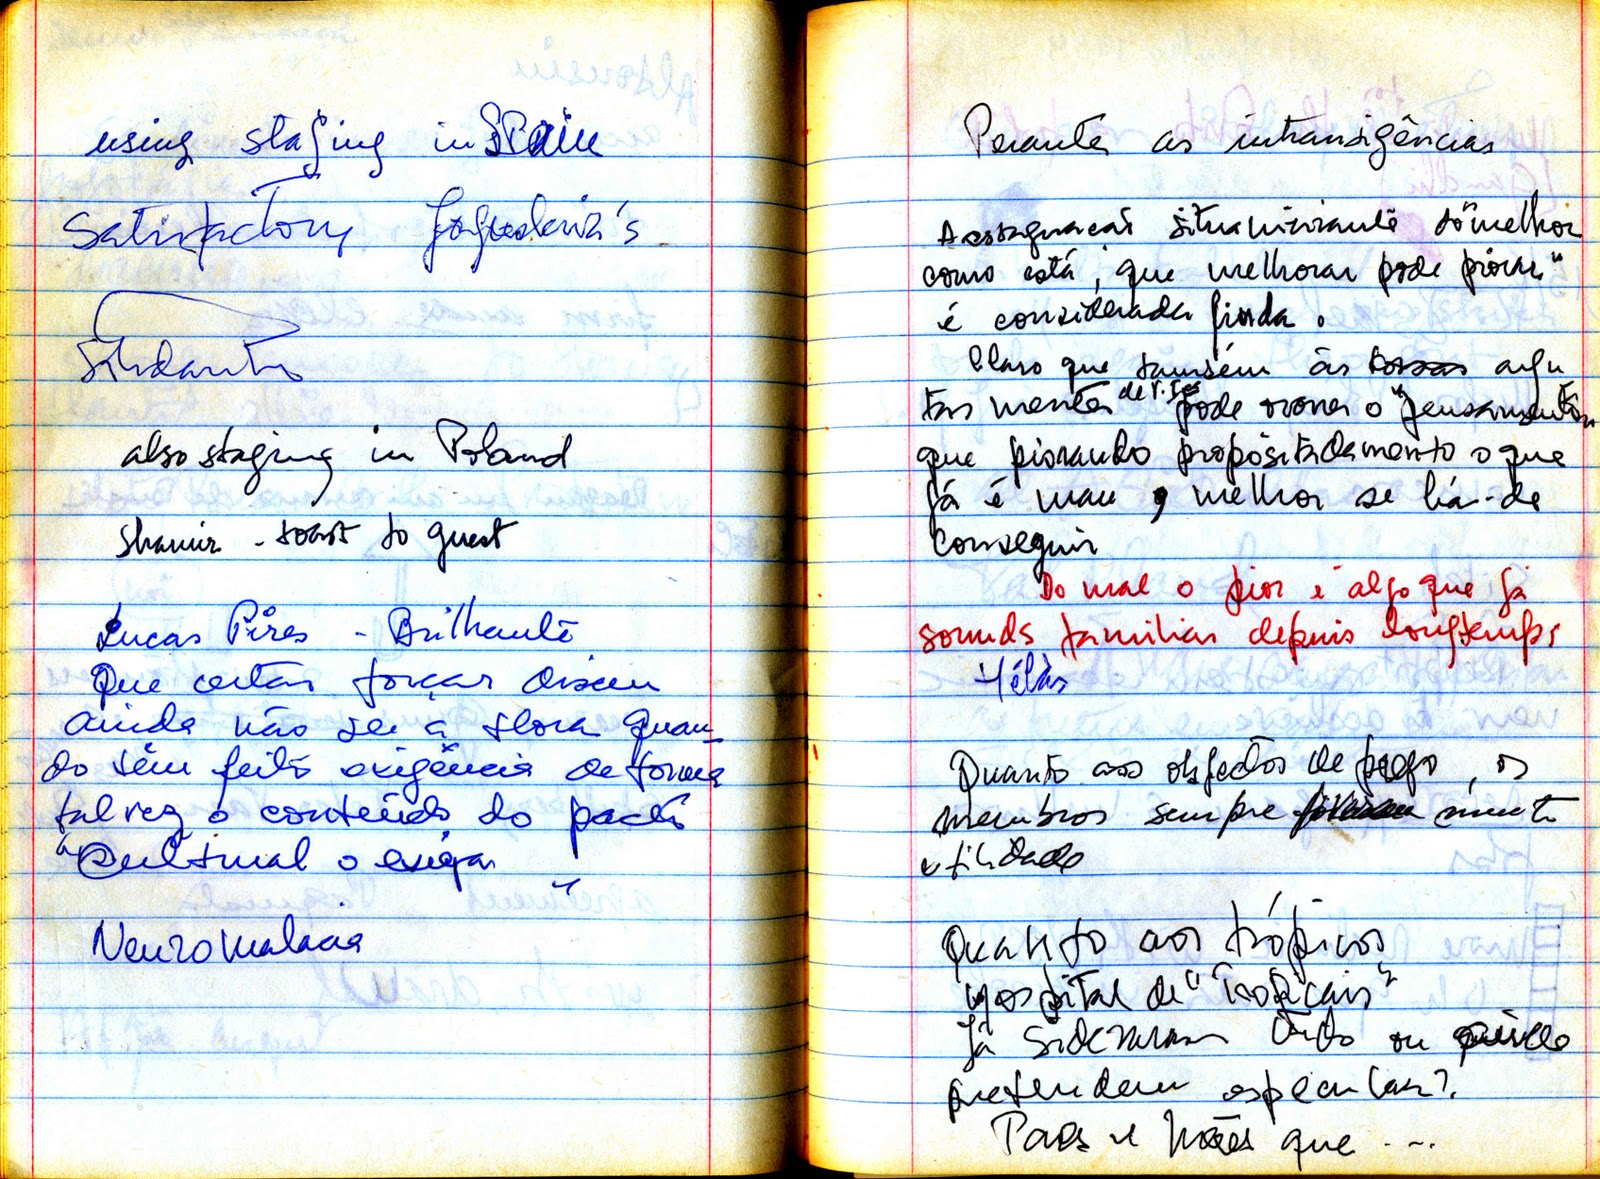 using staging in Spain
Satisfactory
also staging in Poland
Shamir - toast to guest
Lucas Pires - Brilhante
Que certas forças dizem
ainda não sei a flora quan
do têm feito exigência de forma
talvez o conteúdo do pacto
cultural o exija
Neuromalaca
Perante as intransigências
A estagnação "melhor
como está, que melhorar pode piorar"
é considerada finda.
Claro que também às argu
tas mentes de V. Exas pode o "pensamento
que piorando propositadamente o que
já é mau, melhor se há-de
conseguir
Do mal o pior é algo que já
sounds familiar depuis longtemps
Hélàs
Quanto aos objectos de prego, os
membros sempre
utilidade
Quanto aos trópicos
Hospital de "Tropicais"
Já tudo ou
pretendem especular?
Paes e Mães que ....